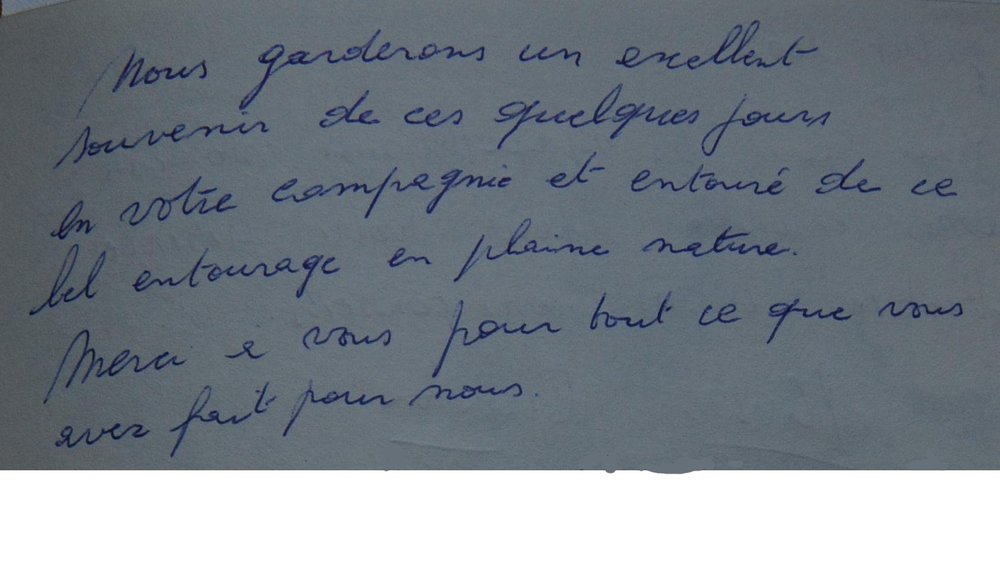 Nous garderons un excellent
souvenir de ces quelques jours
en votre compagnie et entouré de ce
bel entourage en plaine nature.
Merci a vous pour tout ce que vous
avez fait pour nous.